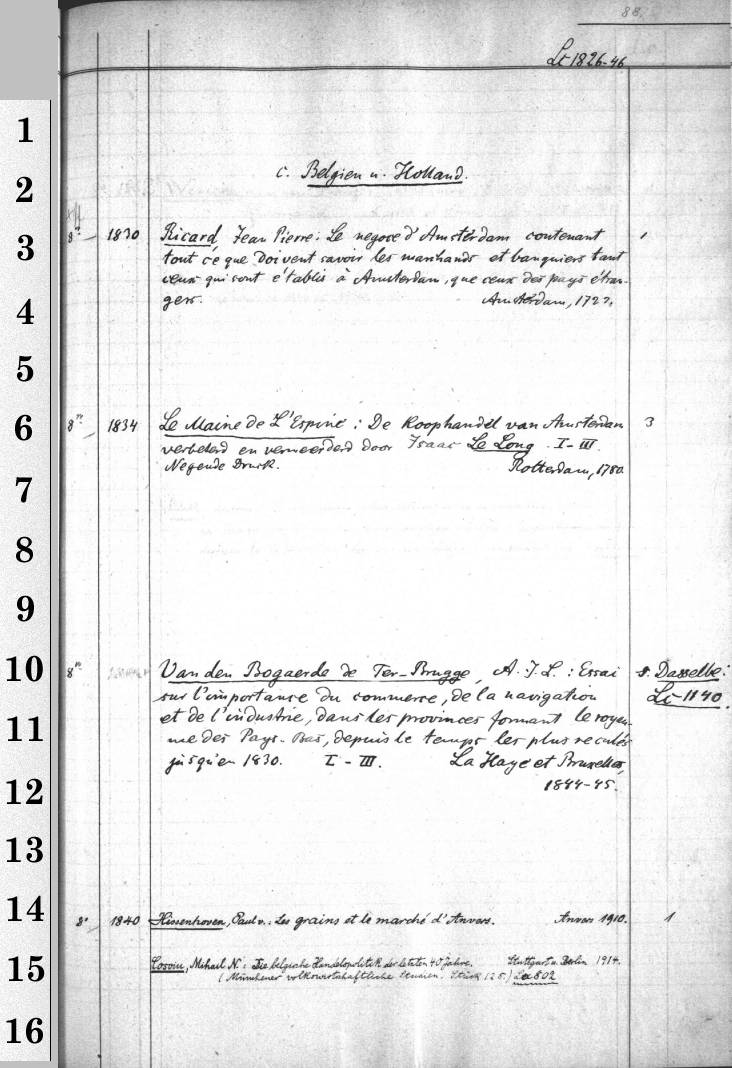 88.
Lc 1826-46
1
2
3
4
5
6
7
8
9
10
11
12
13
14
15
16
c. Belgien u. Holland.
8° 1830 Ricard, Jean Pierre: Le negoce d'Amsterdam contenant 1
tout ce que doivent savoir les marchands et banquiers tant
ceux qui sont établis à Amsterdam, que ceux des pays étran-
gers. Amsterdam, 1722.
8° 1834 Le Maine de L'Espine: De Koophandel van Amsterdam 3
verbeterd en vermeerderd door Isaac Le Long. I-III.
Negende Druck. Rotterdam, 1780.
8° Van den Bogaerde de Ter-Brugge, A.J.L.: Essai s. Dasselbe:
sur l'importance du commerce, de la navigation Lc 1140.
et de l'industrie, dans les provinces formant le royau-
me des Pays-Bas, depuis le temps les plus reculés
jusqu'en 1830. I-III. La Haye et Bruxelles,
1844-45.
8° 1840 Hissenhoven, Paul v.: Les grains et le marché d'Anvers. Anvers 1910. 1
Cosoiu, Mihail N.: Die belgische Handelspolitik der letzten 40 Jahre. Stuttgart u. Berlin 1914.
(Münchener volkswirtschaftliche Studien. Stück 128.) La 802